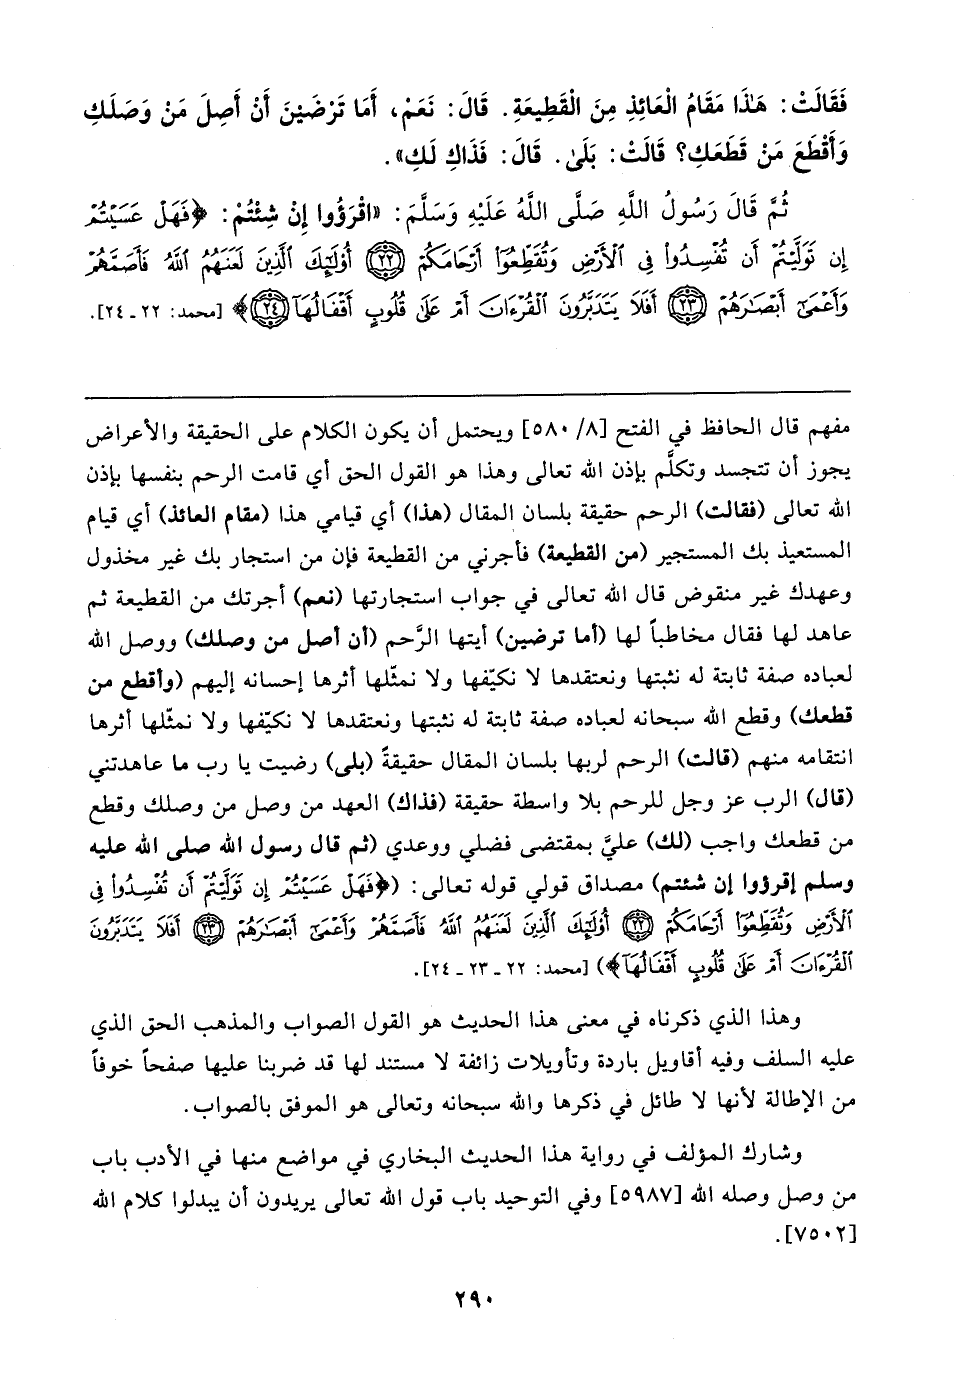 فَقَالَتْ: هَـٰذَا مَقَامُ الْعَائِذِ مِنَ الْقَطِيعَةِ. قَالَ: نَعَمْ، أَمَا تَرْضَيْنَ أَنْ أَصِلَ مَنْ وَصَلَكِ
وَأَقْطَعَ مَنْ قَطَعَكِ؟ قَالَتْ: بَلَىٰ. قَالَ: فَذَاكِ لَكِ».
ثُمَّ قَالَ رَسُولُ اللَّهِ صَلَّى اللَّهُ عَلَيْهِ وَسَلَّمَ: «اقْرَؤُوا إِنْ شِئْتُمْ: ﴿فَهَلْ عَسَيْتُمْ
إِن تَوَلَّيْتُمْ أَن تُفْسِدُوا۟ فِى ٱلْأَرْضِ وَتُقَطِّعُوٓا۟ أَرْحَامَكُمْ ۝٢٢ أُو۟لَـٰٓئِكَ ٱلَّذِينَ لَعَنَهُمُ ٱللَّهُ فَأَصَمَّهُمْ
وَأَعْمَىٰٓ أَبْصَـٰرَهُمْ ۝٢٣ أَفَلَا يَتَدَبَّرُونَ ٱلْقُرْءَانَ أَمْ عَلَىٰ قُلُوبٍ أَقْفَالُهَآ ۝٢٤﴾ [محمد: ٢٢ ـ ٢٤].
مفهم قال الحافظ في الفتح [٨/ ٥٨٠] ويحتمل أن يكون الكلام على الحقيقة والأعراض
يجوز أن تتجسد وتكلَّم بإذن الله تعالى وهذا هو القول الحق أي قامت الرحم بنفسها بإذن
الله تعالى (فقالت) الرحم حقيقة بلسان المقال (هذا) أي قيامي هذا (مقام العائذ) أي قيام
المستعيذ بك المستجير (من القطيعة) فأجرني من القطيعة فإن من استجار بك غير مخذول
وعهدك غير منقوض قال الله تعالى في جواب استجارتها (نعم) أجرتك من القطيعة ثم
عاهد لها فقال مخاطباً لها (أما ترضين) أيتها الرَّحم (أن أصل من وصلك) ووصل الله
لعباده صفة ثابتة له نثبتها ونعتقدها لا نكيّفها ولا نمثّلها أثرها إحسانه إليهم (وأقطع من
قطعك) وقطع الله سبحانه لعباده صفة ثابتة له نثبتها ونعتقدها لا نكيّفها ولا نمثّلها أثرها
انتقامه منهم (قالت) الرحم لربها بلسان المقال حقيقةً (بلى) رضيت يا رب ما عاهدتني
(قال) الرب عز وجل للرحم بلا واسطة حقيقة (فذاك) العهد من وصل من وصلك وقطع
من قطعك واجب (لك) عليَّ بمقتضى فضلي ووعدي (ثم قال رسول الله صلى الله عليه
وسلم إقرؤوا إن شئتم) مصداق قولي قوله تعالى: (﴿فَهَلْ عَسَيْتُمْ إِن تَوَلَّيْتُمْ أَن تُفْسِدُوا۟ فِى
ٱلْأَرْضِ وَتُقَطِّعُوٓا۟ أَرْحَامَكُمْ ۝٢٢ أُو۟لَـٰٓئِكَ ٱلَّذِينَ لَعَنَهُمُ ٱللَّهُ فَأَصَمَّهُمْ وَأَعْمَىٰٓ أَبْصَـٰرَهُمْ ۝٢٣ أَفَلَا يَتَدَبَّرُونَ
ٱلْقُرْءَانَ أَمْ عَلَىٰ قُلُوبٍ أَقْفَالُهَآ﴾) [محمد: ٢٢ ـ ٢٣ ـ ٢٤].
وهذا الذي ذكرناه في معنى هذا الحديث هو القول الصواب والمذهب الحق الذي
عليه السلف وفيه أقاويل باردة وتأويلات زائفة لا مستند لها قد ضربنا عليها صفحاً خوفاً
من الإطالة لأنها لا طائل في ذكرها والله سبحانه وتعالى هو الموفق بالصواب.
وشارك المؤلف في رواية هذا الحديث البخاري في مواضع منها في الأدب باب
من وصل وصله الله [٥٩٨٧] وفي التوحيد باب قول الله تعالى يريدون أن يبدلوا كلام الله
[٧٥٠٢].
٢٩٠